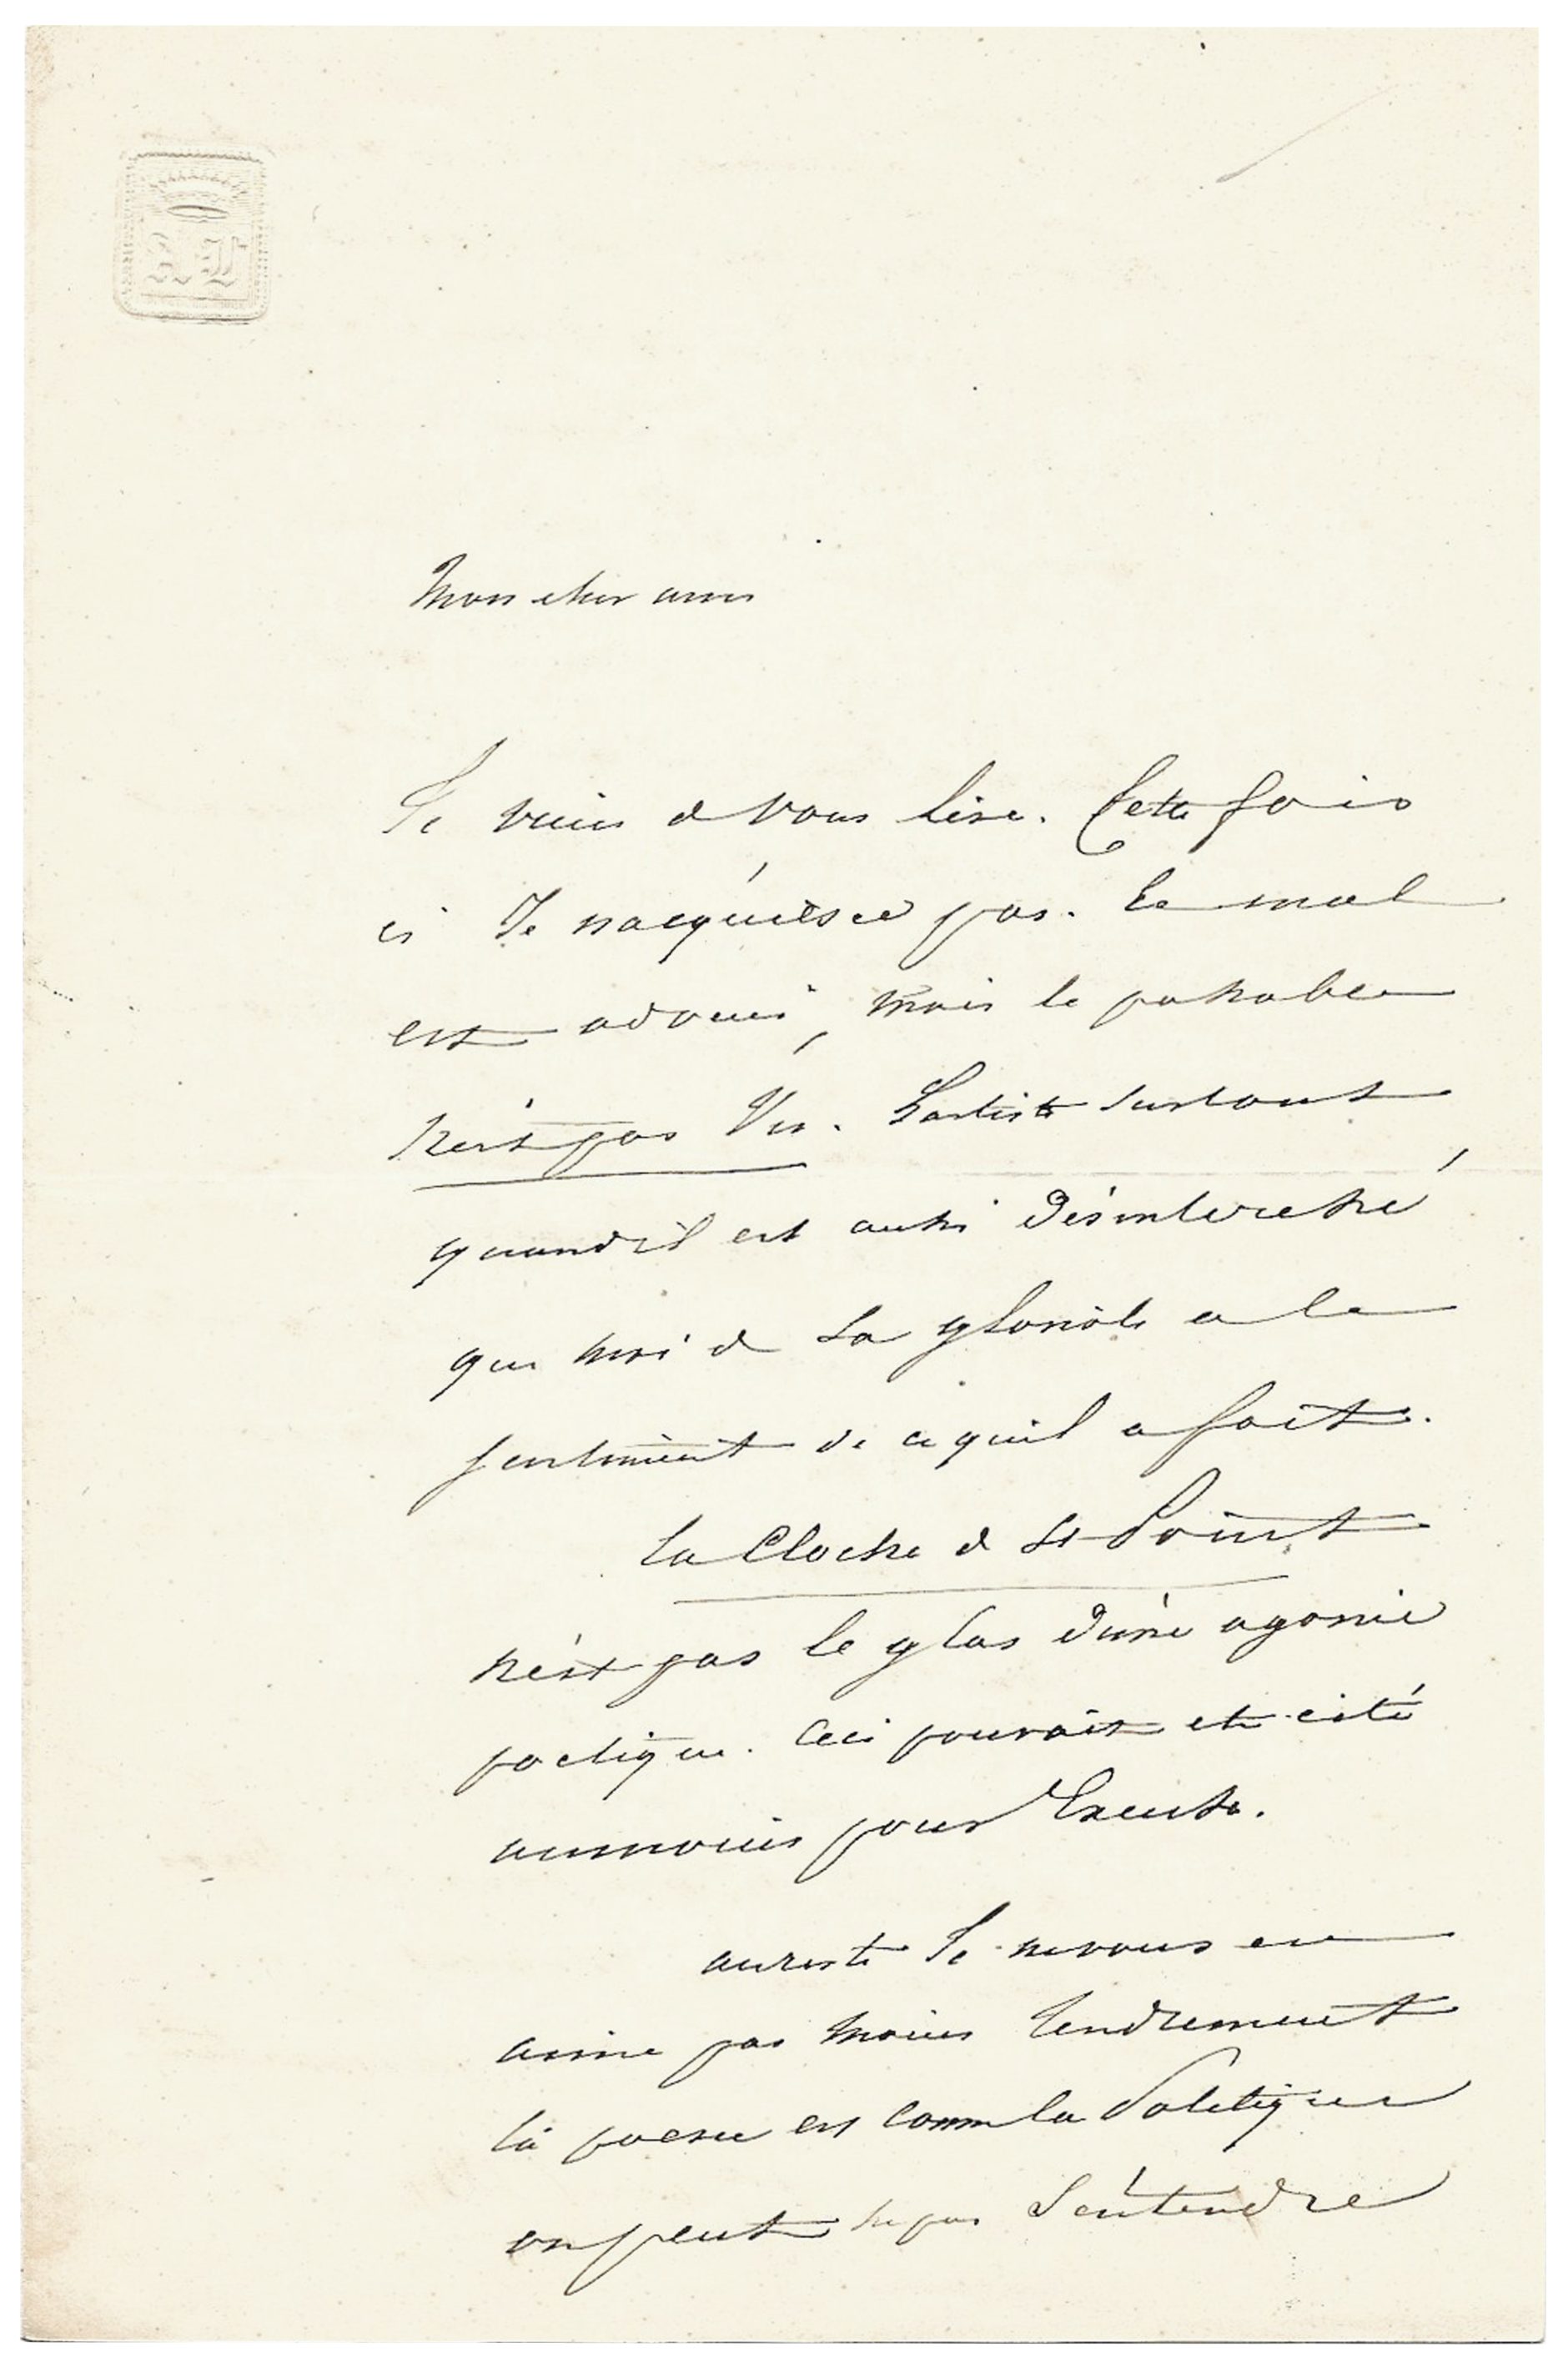 AL
Mon cher ami
Je viens de vous lire. Cette fois
ci Je n'acquiesce pas. Le mal
est adouci, mais le passable
n'est pas Vu. L'artiste surtout
quand il est aussi Désinteressé
que moi de sa gloriole a le
sentiment de ce qu'il a fait.
La Cloche de St Point
n'est pas le glas d'une agonie
poetique. Ceci pouvait etre cité
aumoins pour Excuse.
aureste Je ne vous en
aime pas moins tendrement
la poesie est comme la Politique
on peut ne pas s'entendre